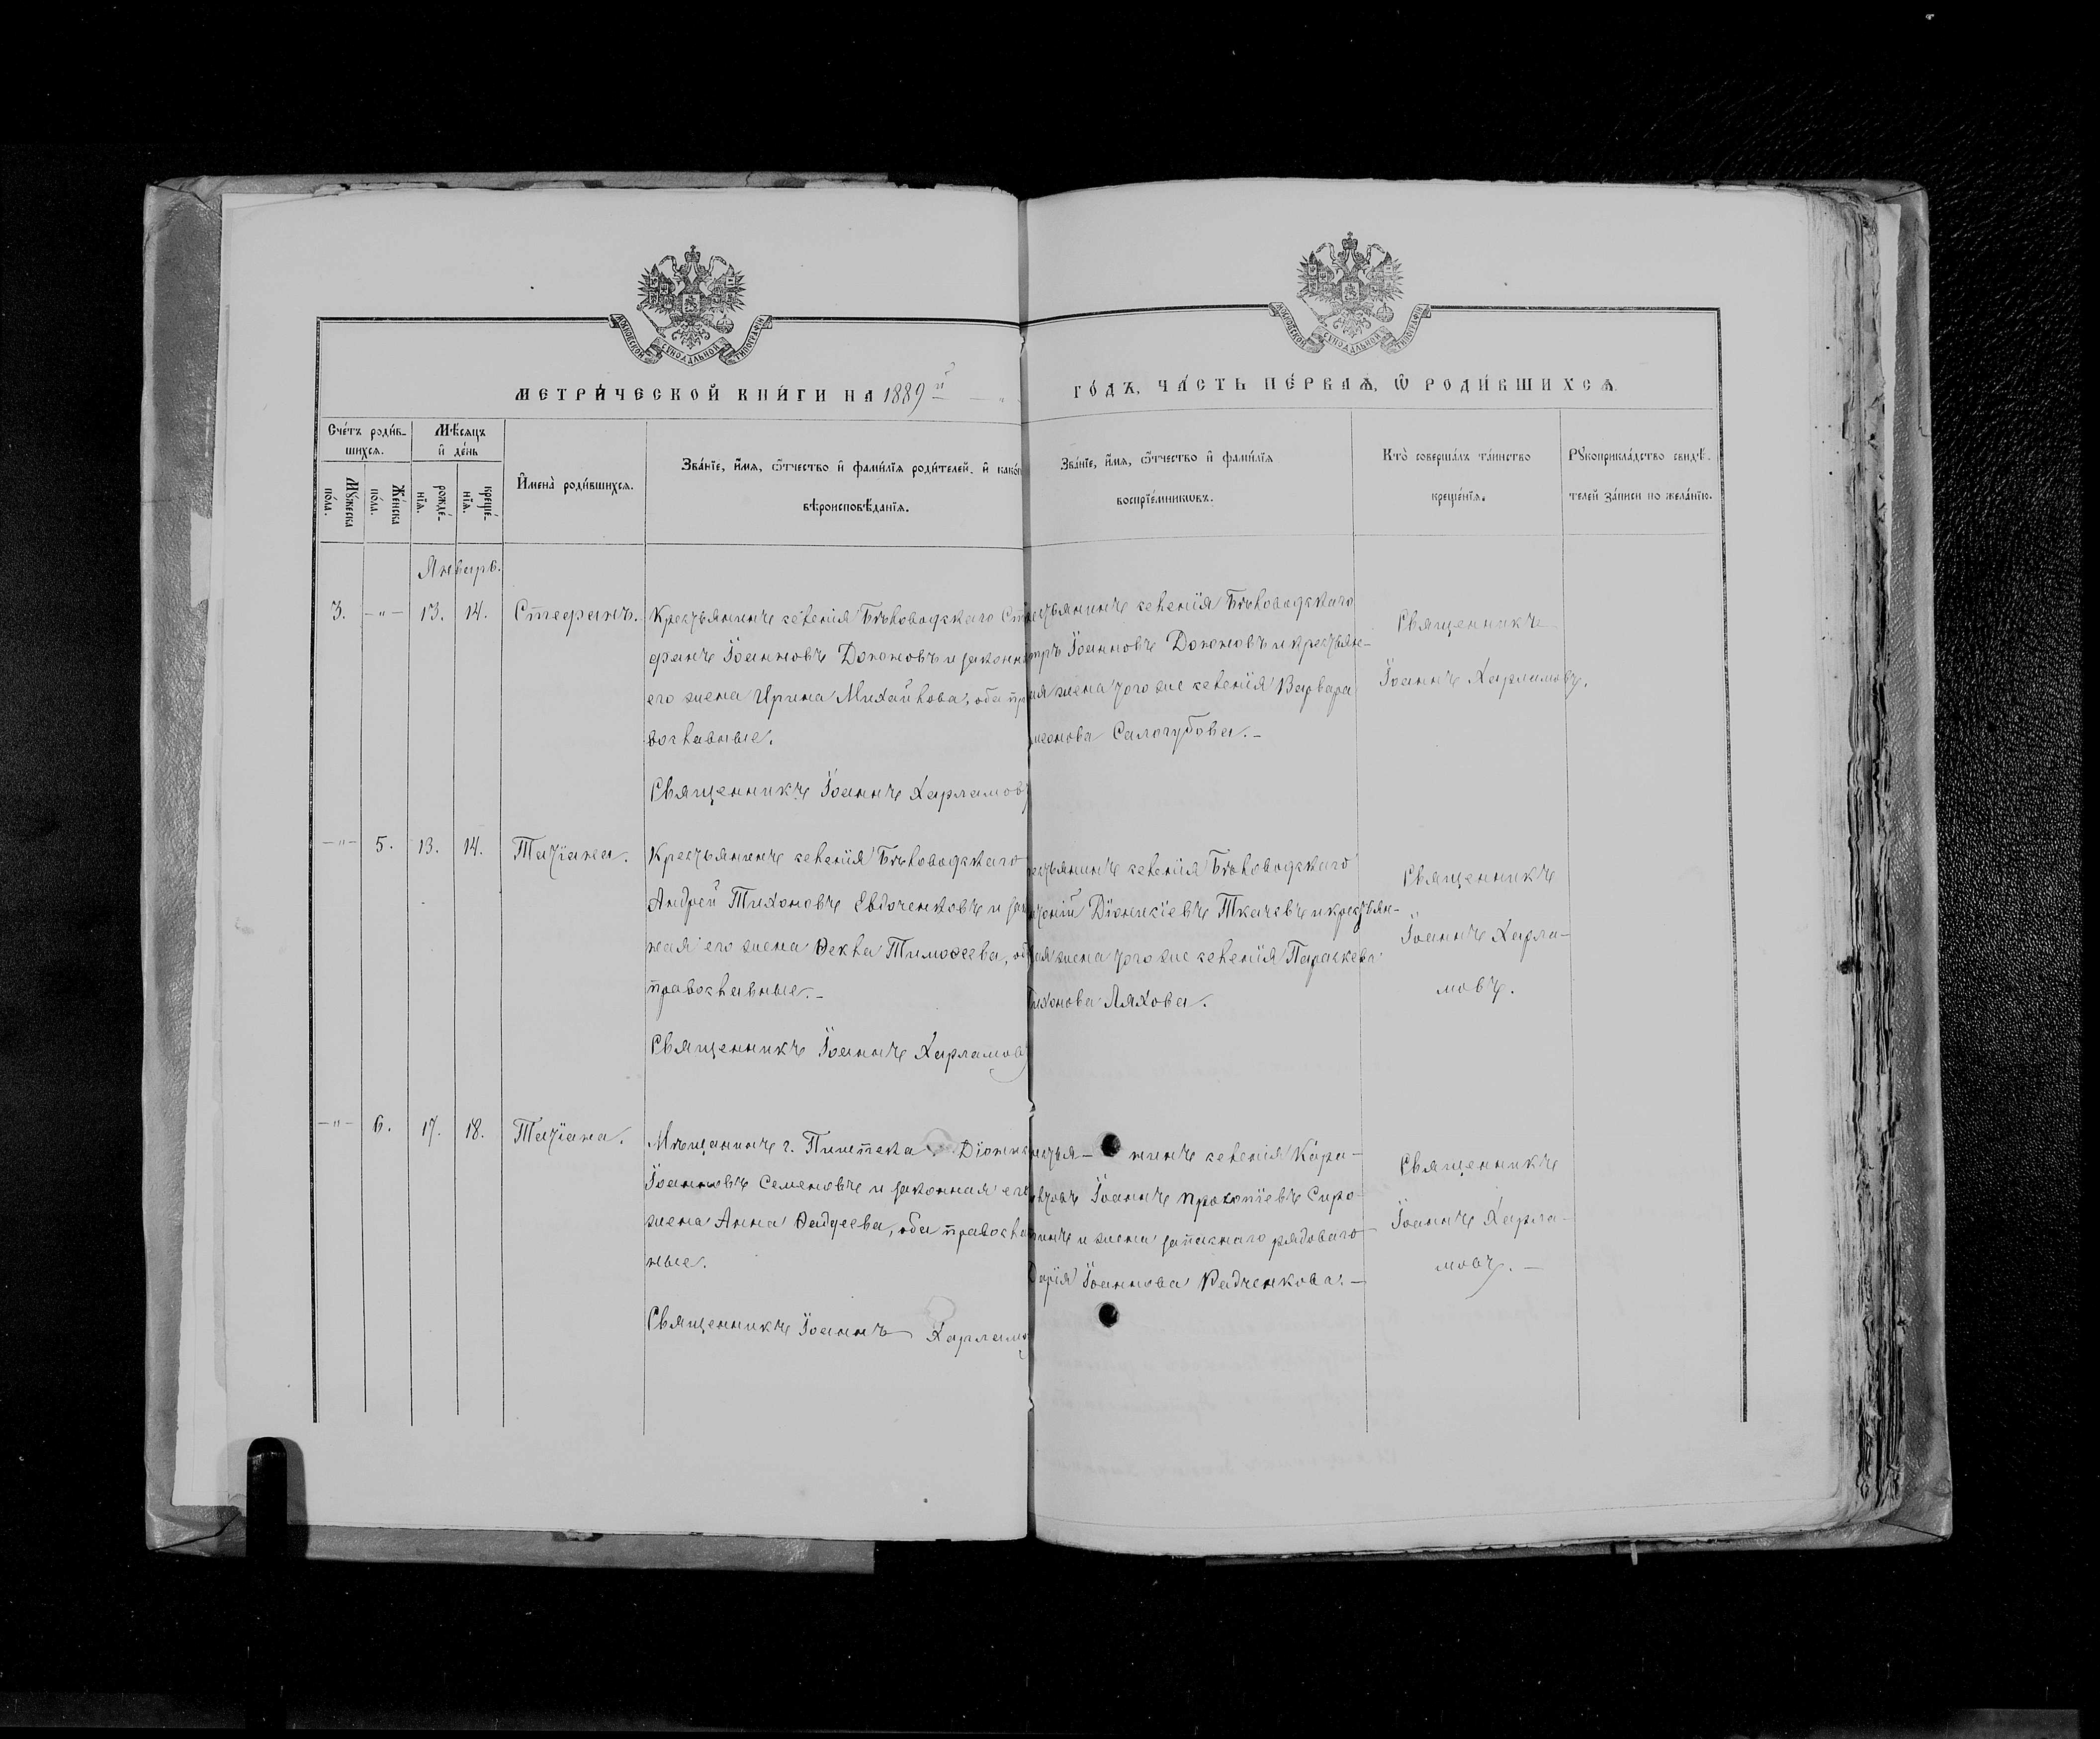 МОСКОВСКОЙ СУНОДАЛЬНОЙ ТИПОГРАФІИ
МОСКОВСКОЙ СУНОДАЛЬНОЙ ТИПОГРАФІИ
МЕТРИ́ЧЕСКОЙ КНИ́ГИ НА 1889й
ГО́ДЪ, ЧА́СТЬ ПЕ́РВАѦ, Ѽ РОДИ́ВШИХСѦ.
Сче́тъ роди́в-
шихсѧ.
Мѣ́сѧцъ
и҆ де́нь
Мꙋ́жеска
по́ла.
Же́нска
по́ла.
рожде́-
нїѧ.
креще́-
нїѧ.
И҆мена̀ роди́вшихсѧ.
Зва́нїе, и҆́мѧ, ѻ҆́тчество и҆ фамѝлїѧ роди́телей, и҆ како́г
вѣроисповѣ́данїѧ.
Зва́нїе, и҆́мѧ, ѻ҆́тчество и҆ фамѝлїѧ
воспрїе́мникѡвъ.
Кто̀ соверша́лъ та́инство
креще́нїѧ.
Рꙋкоприкла́дство свидѣ́-
телей за́писи по жела́нїю.
Январь.
3. -"- 13. 14. Стефанъ.
Крестьянинъ селенія Бѣловодскаго Сте
фанъ Іоанновъ Доконовъ и законн
его жена Ирина Михайлова, оба пр
вославные.
Священникъ Іоаннъ Харламовъ
рестьянинъ селенія Бѣловодскаго
тръ Іоанновъ Доконовъ и крестьян-
ая жена того же селенія Варвара
меонова Салогубова.-
Священникъ
Іоаннъ Харламовъ.
-"- 5. 13. 14. Татіана.
Крестьянинъ селенія Бѣловодскаго
Андрей Тихоновъ Евдоченковъ и зак
ная его жена Ѳекла Тимоѳеева, об
православные.-
Священникъ Іоаннъ Харламовъ
рестьянинъ селенія Бѣловодскаго
тоній Діонисіевъ Ткачевъ и крестьян-
ая жена того же селенія Параскева
Тихонова Ляхова.
Священникъ
Іоаннъ Харла-
мовъ.
-"- 6. 17. 18. Татіана.
Мѣщанинъ г. Пишпека Діонис
Іоанновъ Семеновъ и законная его
жена Анна Ѳаддеева, оба правосла
ные.
Священникъ Іоаннъ Харламо
естья- нинъ селенія Кара-
Іоаннъ Прокопіевъ Сиро-
тинъ и жена запаснаго рядоваго
Дарія Іоаннова Радченкова.-
Священникъ
Іоаннъ Харла-
мовъ.-